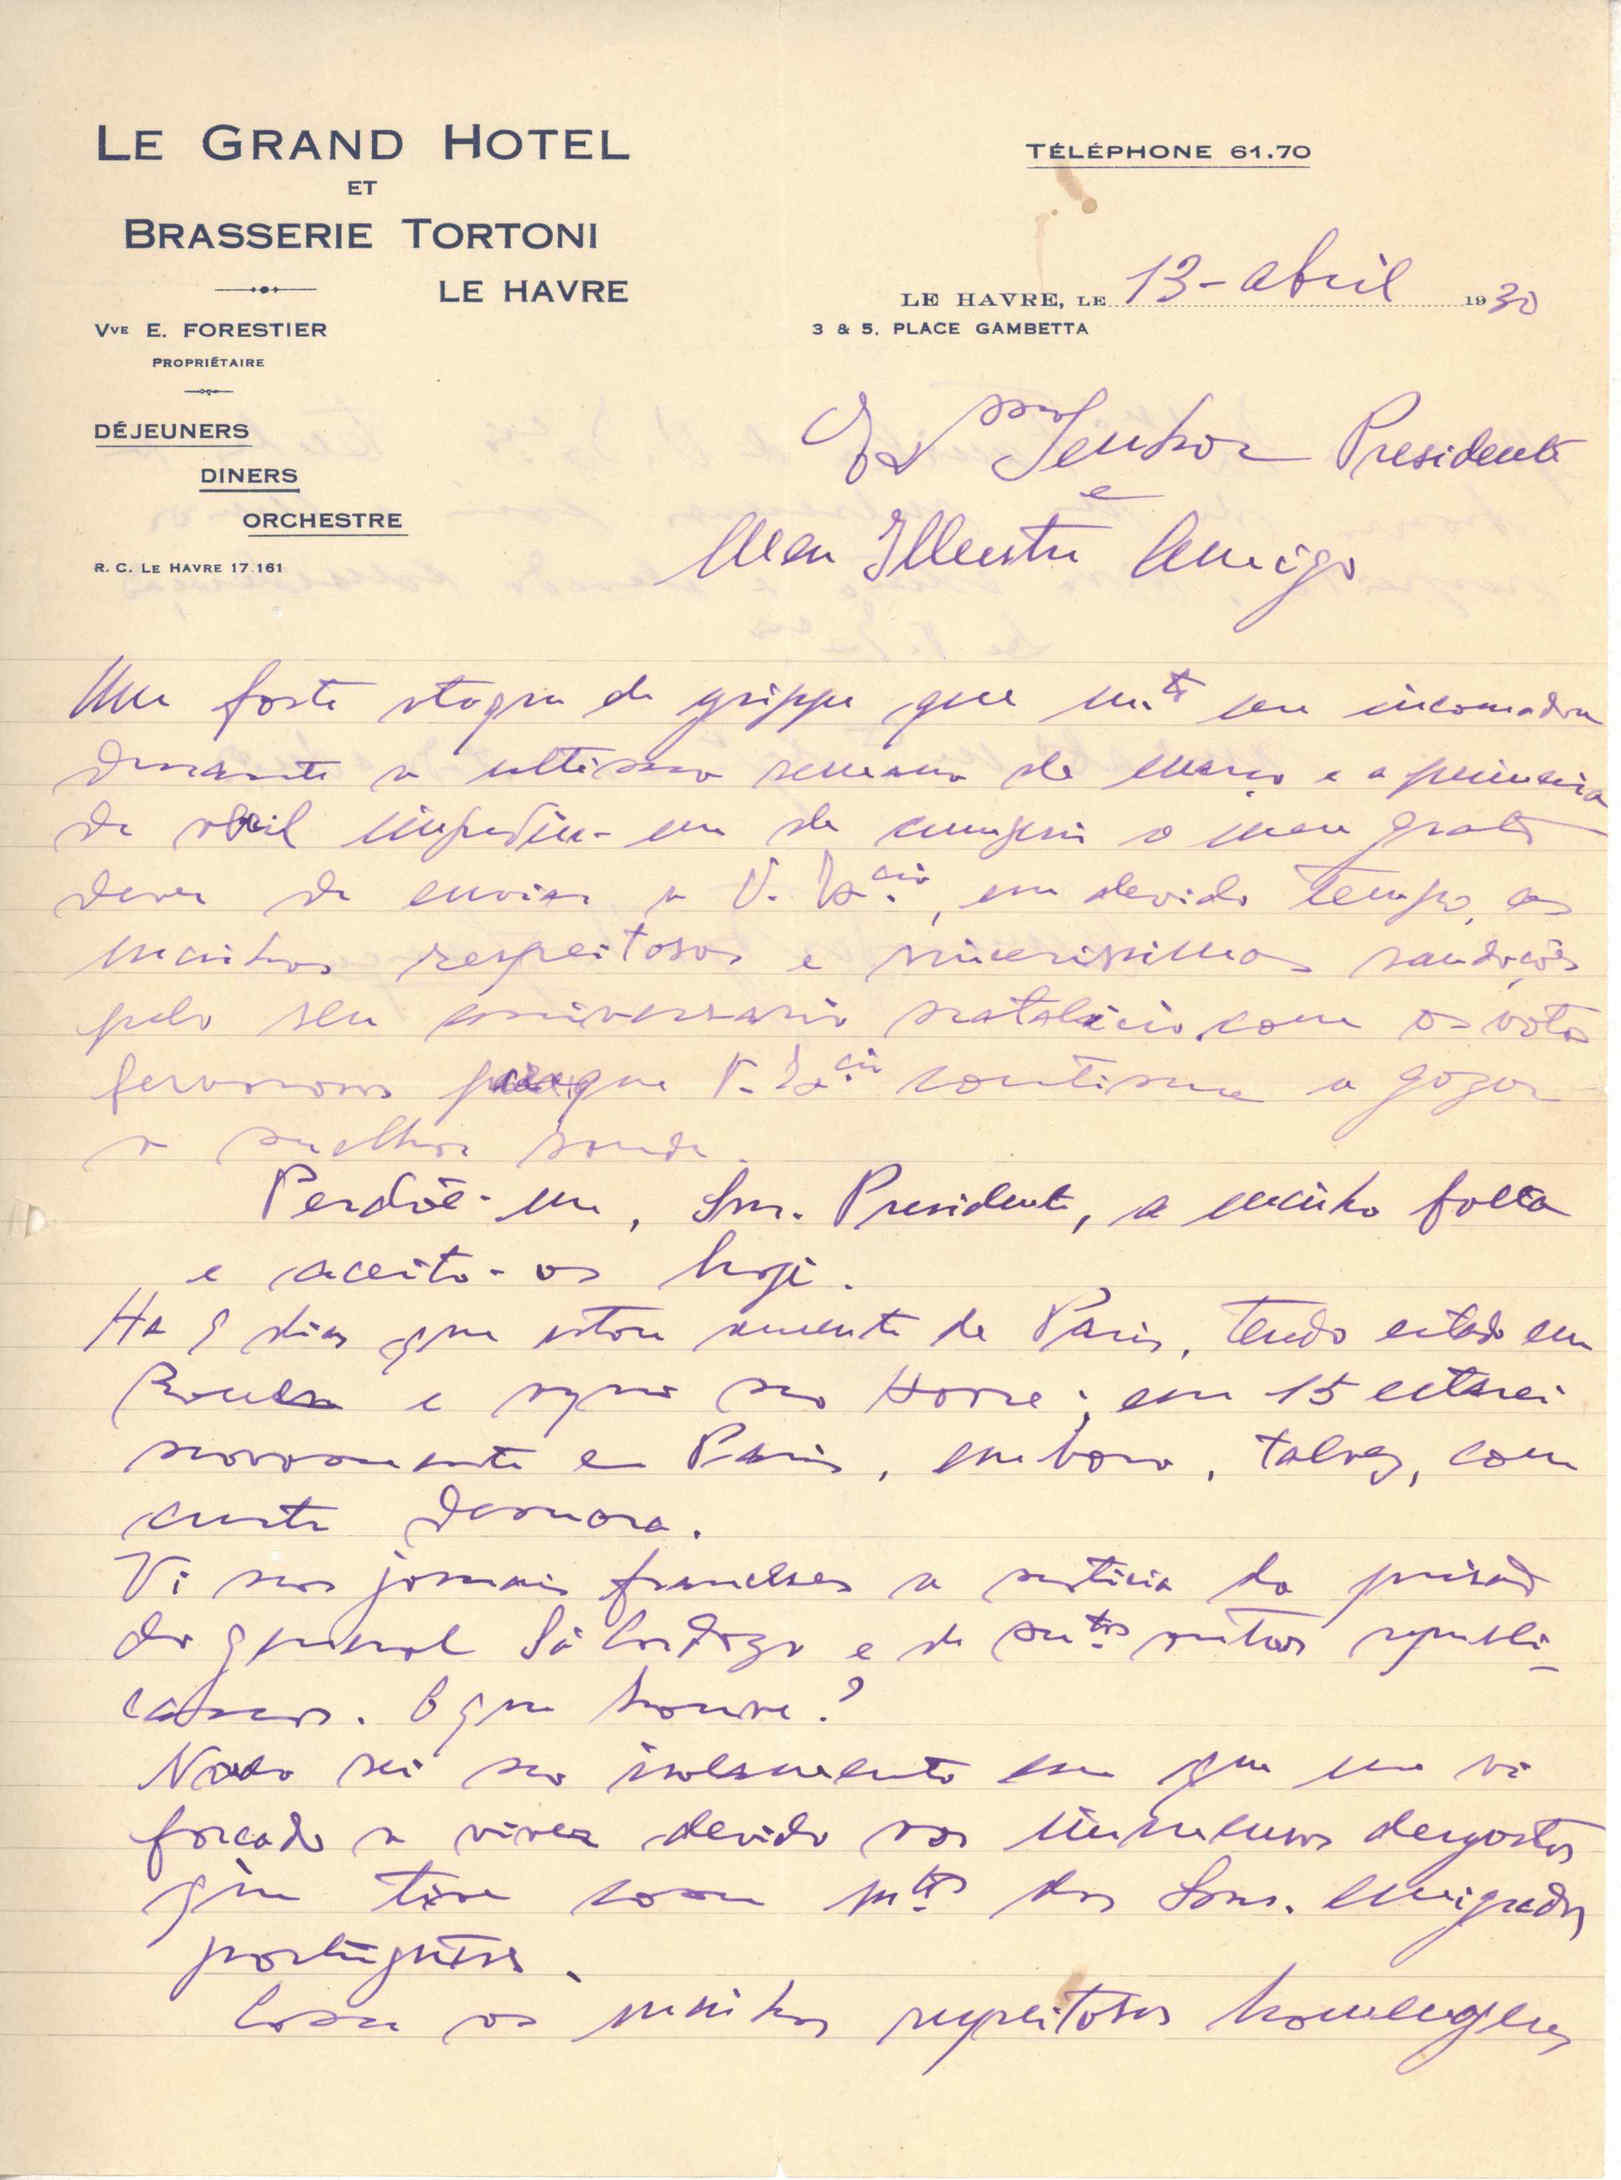 LE GRAND HOTEL
ET
BRASSERIE TORTONI
LE HAVRE
Vve E. FORESTIER
PROPRIÉTAIRE
DÉJEUNERS
DINERS
ORCHESTRE
R. C. LE HAVRE 17.161
TÉLÉPHONE 61.70
LE HAVRE, LE 13-abril 1930
3 & 5, PLACE GAMBETTA
Ex.mo Senhor Presidente
e
Meu Illustre Amigo
Um forte ataque de grippe que m.to me incomodou
durante a ultima semana de março e a primeira
de abril impediu-me de cumprir o meu grato
dever de enviar a V. Ex.cia, em devido tempo, as
minhas respeitosas e sincerissimas saudações
pelo seu anniversario natalicio, com os votos
fervorosos para que V. Ex.cia continue a gozar
a melhor saude.
Perdôe-me, Snr. Presidente, a minha falta
e aceite-os hoje.
Ha 9 dias que estou ausente de Paris, tendo estado em
Rouen e agora no Havre; em 15 estarei
novamente em Paris, embora, talvez, com
curta demora.
Vi nos jornais franceses a noticia da prisão
do general Sá Cardozo e de m.tos outros republi-
canos. O que houve?
Nada sei no isolamento em que me vi
forcado a viver devido aos inumeros desgostos
que tive com m.tos dos Snrs. emigrados
portuguêses.
Com as minhas respeitosas homenagens